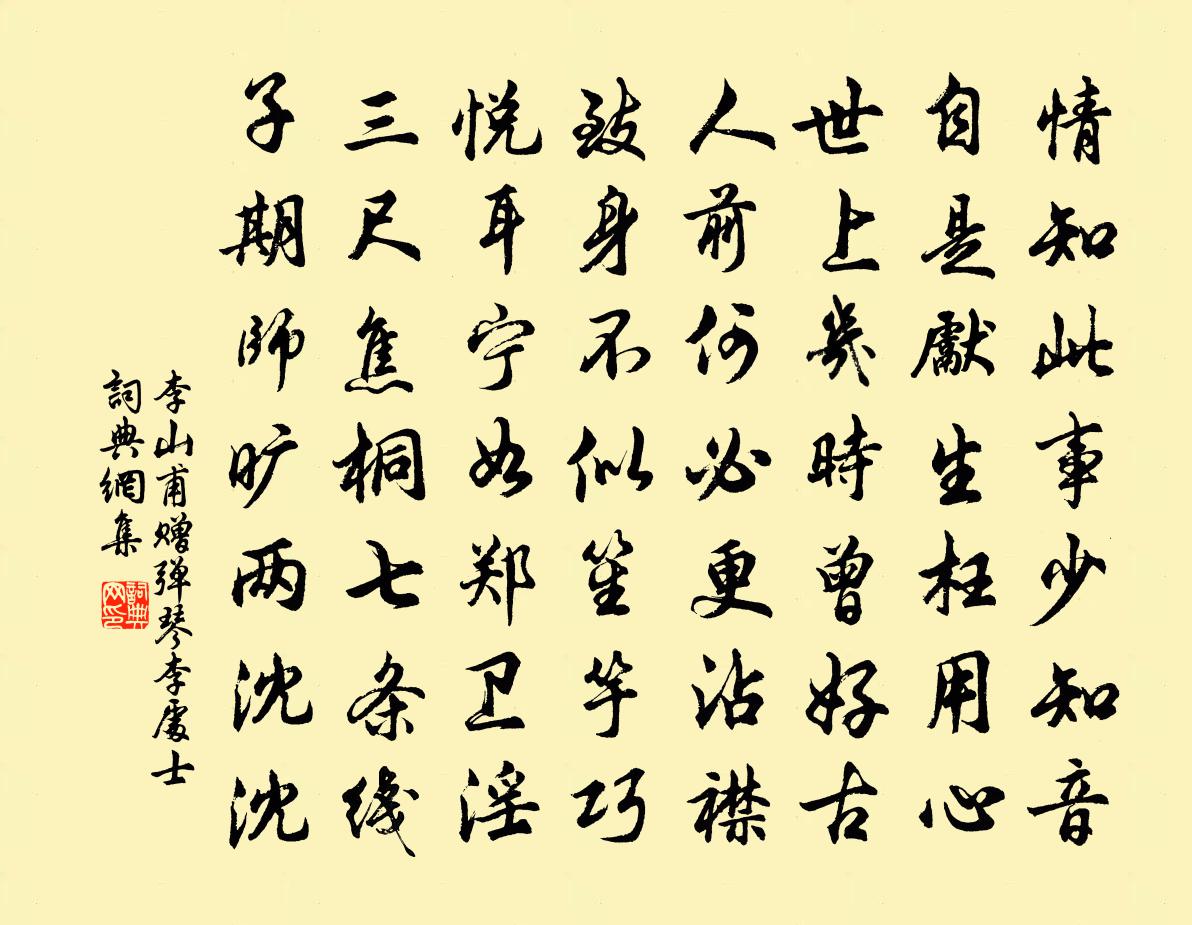 情知此事少知音
自是獻生枉用心
世上幾時曾好古
人前何必更沾襟
致身不似笙竽巧
悦耳宁如郑卫淫
三尺焦桐七条线
子期師旷两沈沈
李山甫赠弹琴李處士
詞典網集
詞典
网印